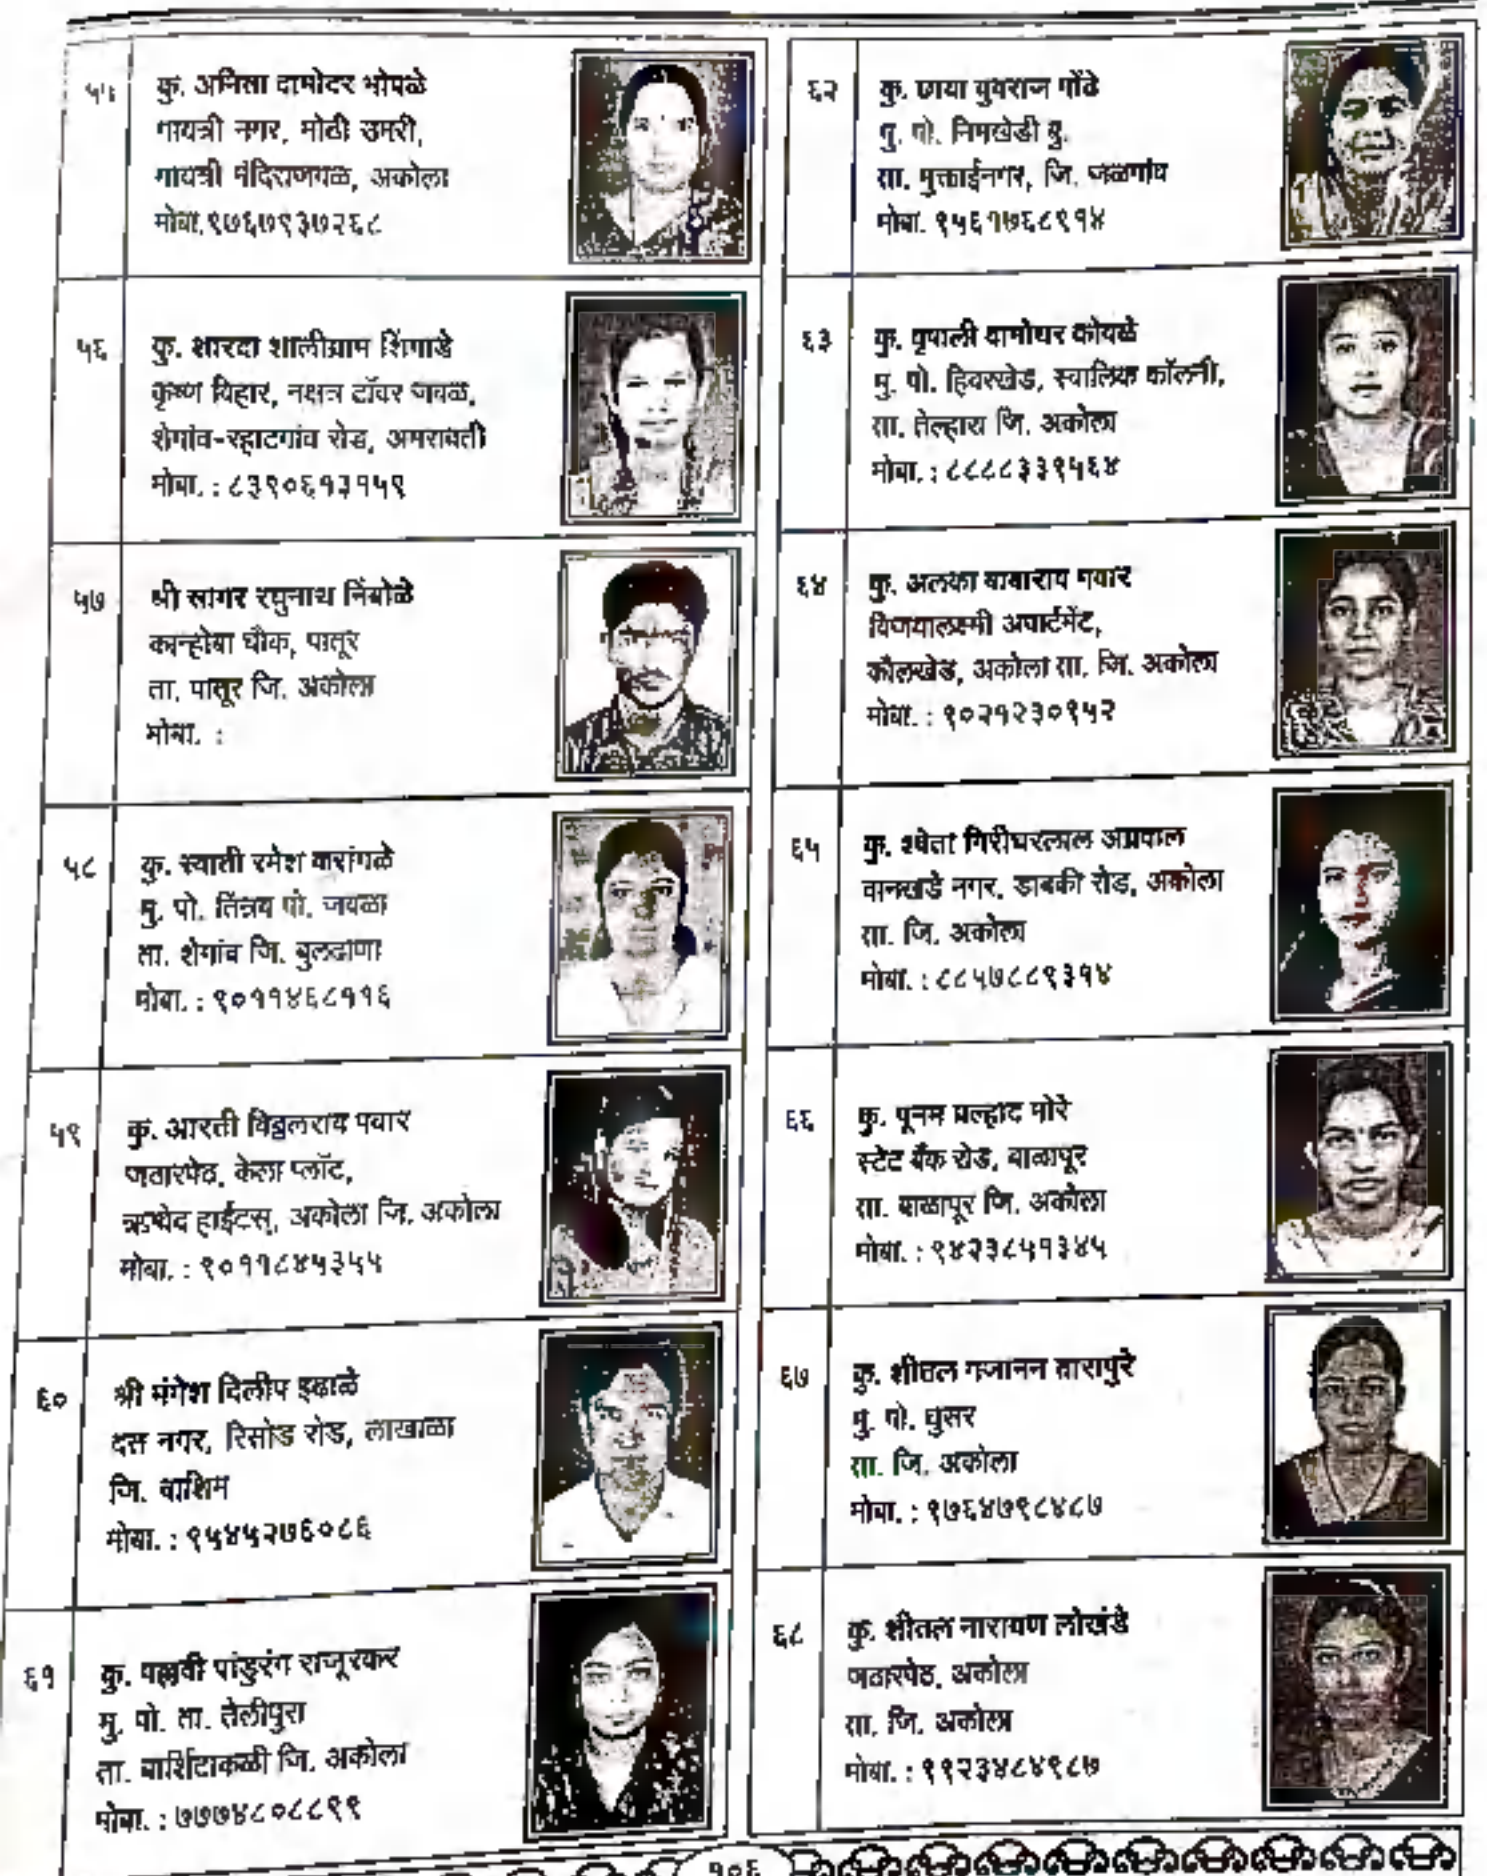 ५५
कु. अनिता दामोदर भोपळे
गायत्री नगर, मोठी उमरी,
गायत्री मंदिराजवळ, अकोला
मोबा.९७६७९३७२६८
५६
कु. शारदा शालीग्राम शिंगाडे
कृष्ण विहार, नक्षत्र टॉवर जवळ,
शेगांव-रहाटगांव रोड, अमरावती
मोबा. : ८३९०६१३१५९
५७
श्री सागर रघुनाथ निंबोळे
कान्होबा चौक, पातूर
ता. पातूर जि. अकोला
मोबा. :
५८
कु. स्वाती रमेश करांगळे
मु. पो. पो. जवळा
ता. शेगांव जि. बुलढाणा
मोबा. : ९०११४६८११६
५९
कु. आरती विठ्ठलराव पवार
जठारपेठ, केला प्लॉट,
हाईटस्, अकोला जि. अकोला
मोबा. : ९०११८४५३५५
६०
श्री मंगेश दिलीप इढाळे
दत्त नगर, रिसोड रोड, लाखाळा
जि. वाशिम
मोबा. : ९५४५२७६०८६
६१
कु. पल्लवी पांडुरंग राजूरकर
मु. पो. ता. तेलीपुरा
ता. बार्शिटाकळी जि. अकोला
मोबा. : ७७७४८०८८९९
६२
कु. छाया युवराज
मु. पो. निमखेडी बु.
ता. मुक्ताईनगर, जि. जळगांव
मोबा. ९५६१७६८९१४
६३
कु. दामोधर कोयळे
मु. पो. हिवरखेड, स्वालिक कॉलनी,
ता. तेल्हारा जि. अकोला
मोबा. : ८८८८३३९५६४
६४
कु. अलका बाबाराव पवार
विजयालक्ष्मी अपार्टमेंट,
कौलखेड, अकोला ता. जि. अकोला
मोबा. : ९०२१२३०९५२
६५
कु. श्वेता गिरीधरलाल अग्रवाल
वानखडे नगर, डाबकी रोड, अकोला
ता. जि. अकोला
मोबा. : ८८५७८८९३१४
६६
कु. पूनम प्रल्हाद मोरे
स्टेट बँक रोड, बाळापूर
ता. बाळापूर जि. अकोला
मोबा. : ९४२३८५१३४५
६७
कु. शीतल गजानन तारापुरे
मु. पो. घुसर
ता. जि. अकोला
मोबा. : ९७६४७९८४८७
६८
कु. शीतल नारायण लोखंडे
जठारपेठ, अकोला
ता. जि. अकोला
मोबा. : ९९२३४८४९८७
१०६